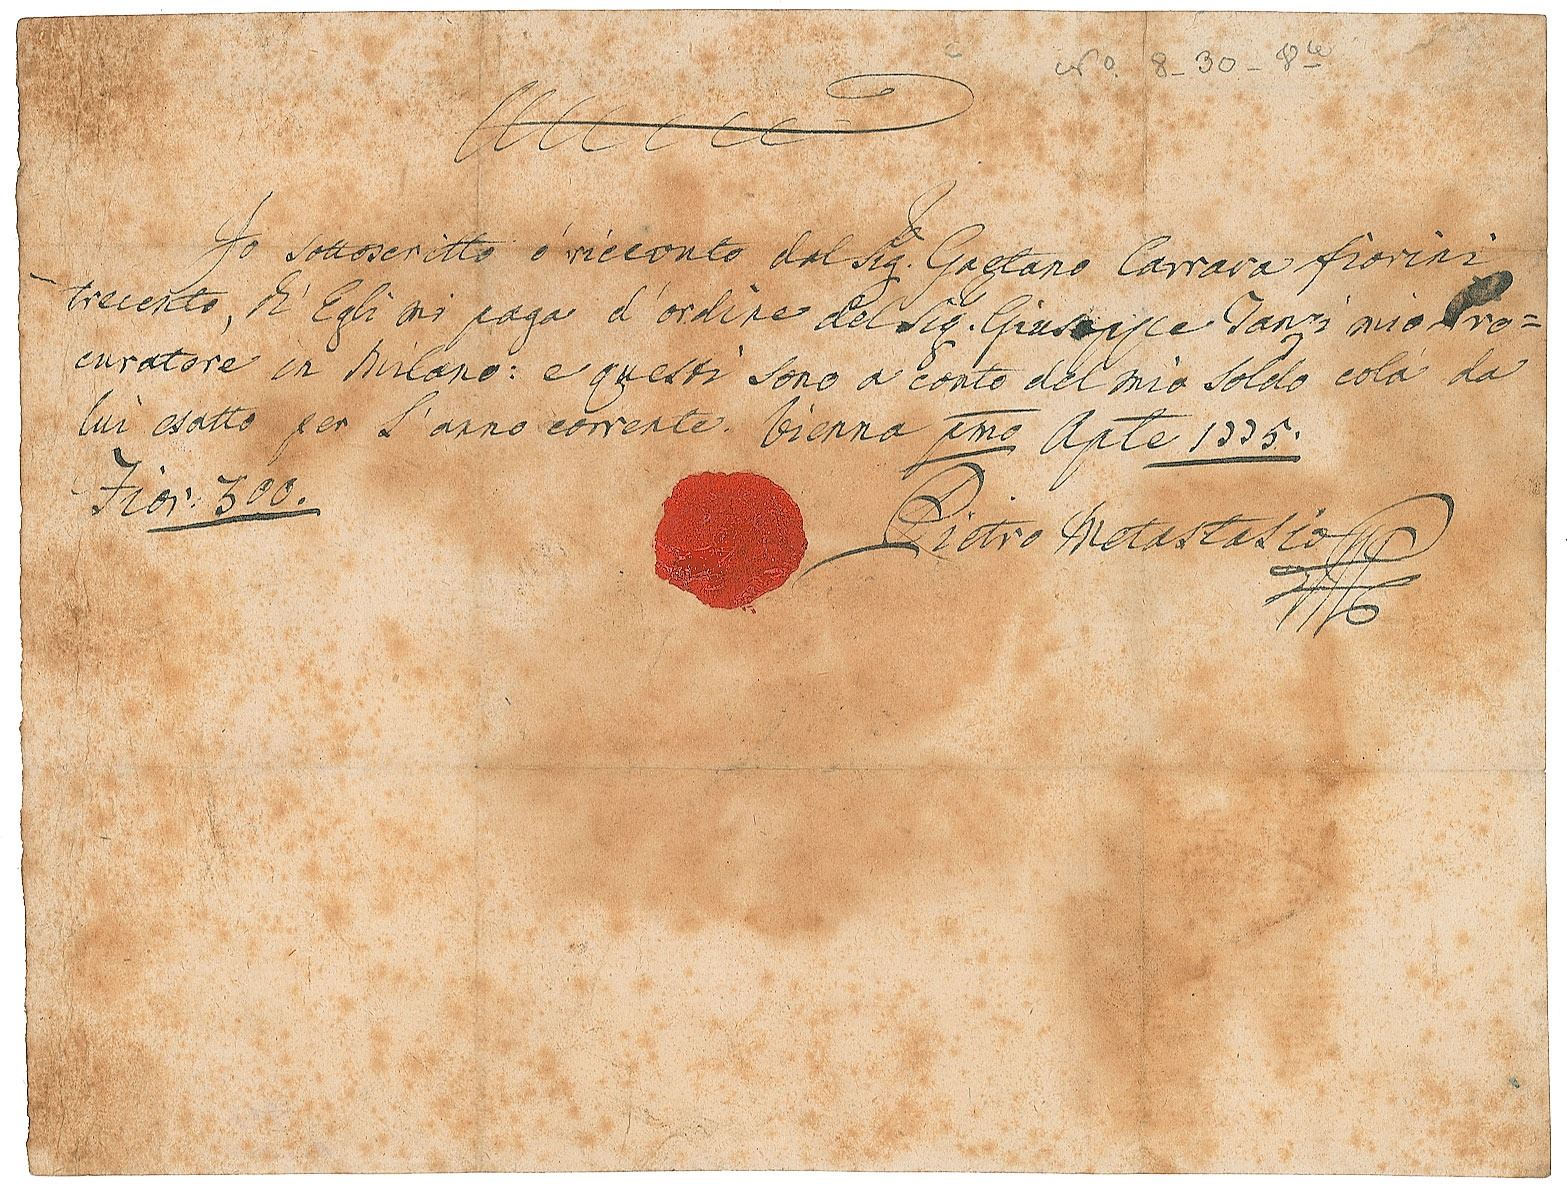 No. 8-30-8
Io sottoscritto ò riceuuto dal Sig.re Gaetano Carrara fiorini
trecento, ch' Egli mi paga d'ordine del Sig.re Giuseppe Tanzi mio Pro=
curatore in Milano: e questi sono a conto del mio soldo colà da
lui esatto per l'anno corrente. Vienna pmo Aple 1775.
Fior: 300.
Pietro Metastasio